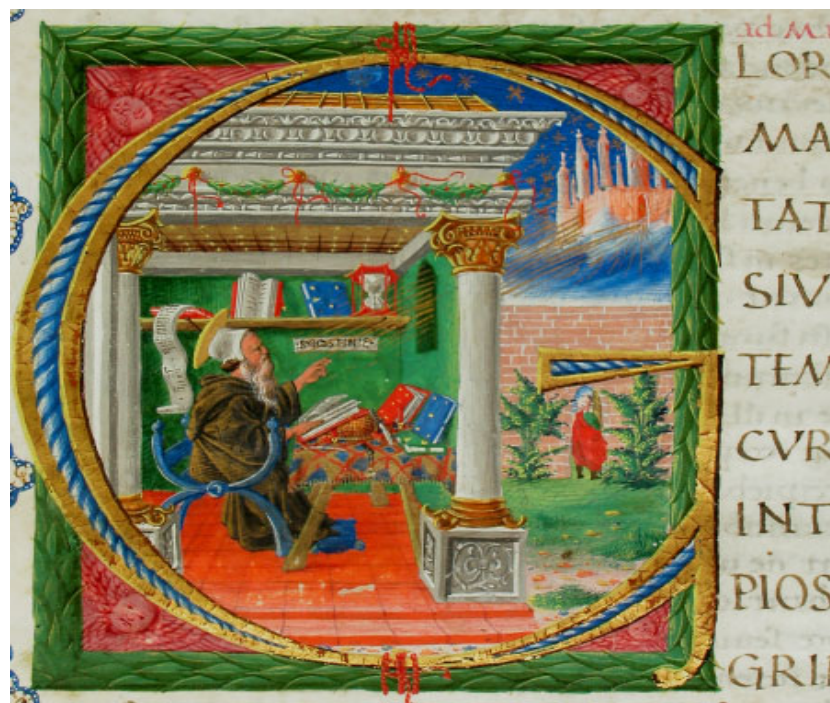 ad M
GLOR
MA
TAT
SIV
TEM
CVR
INT
PIOS
GRI